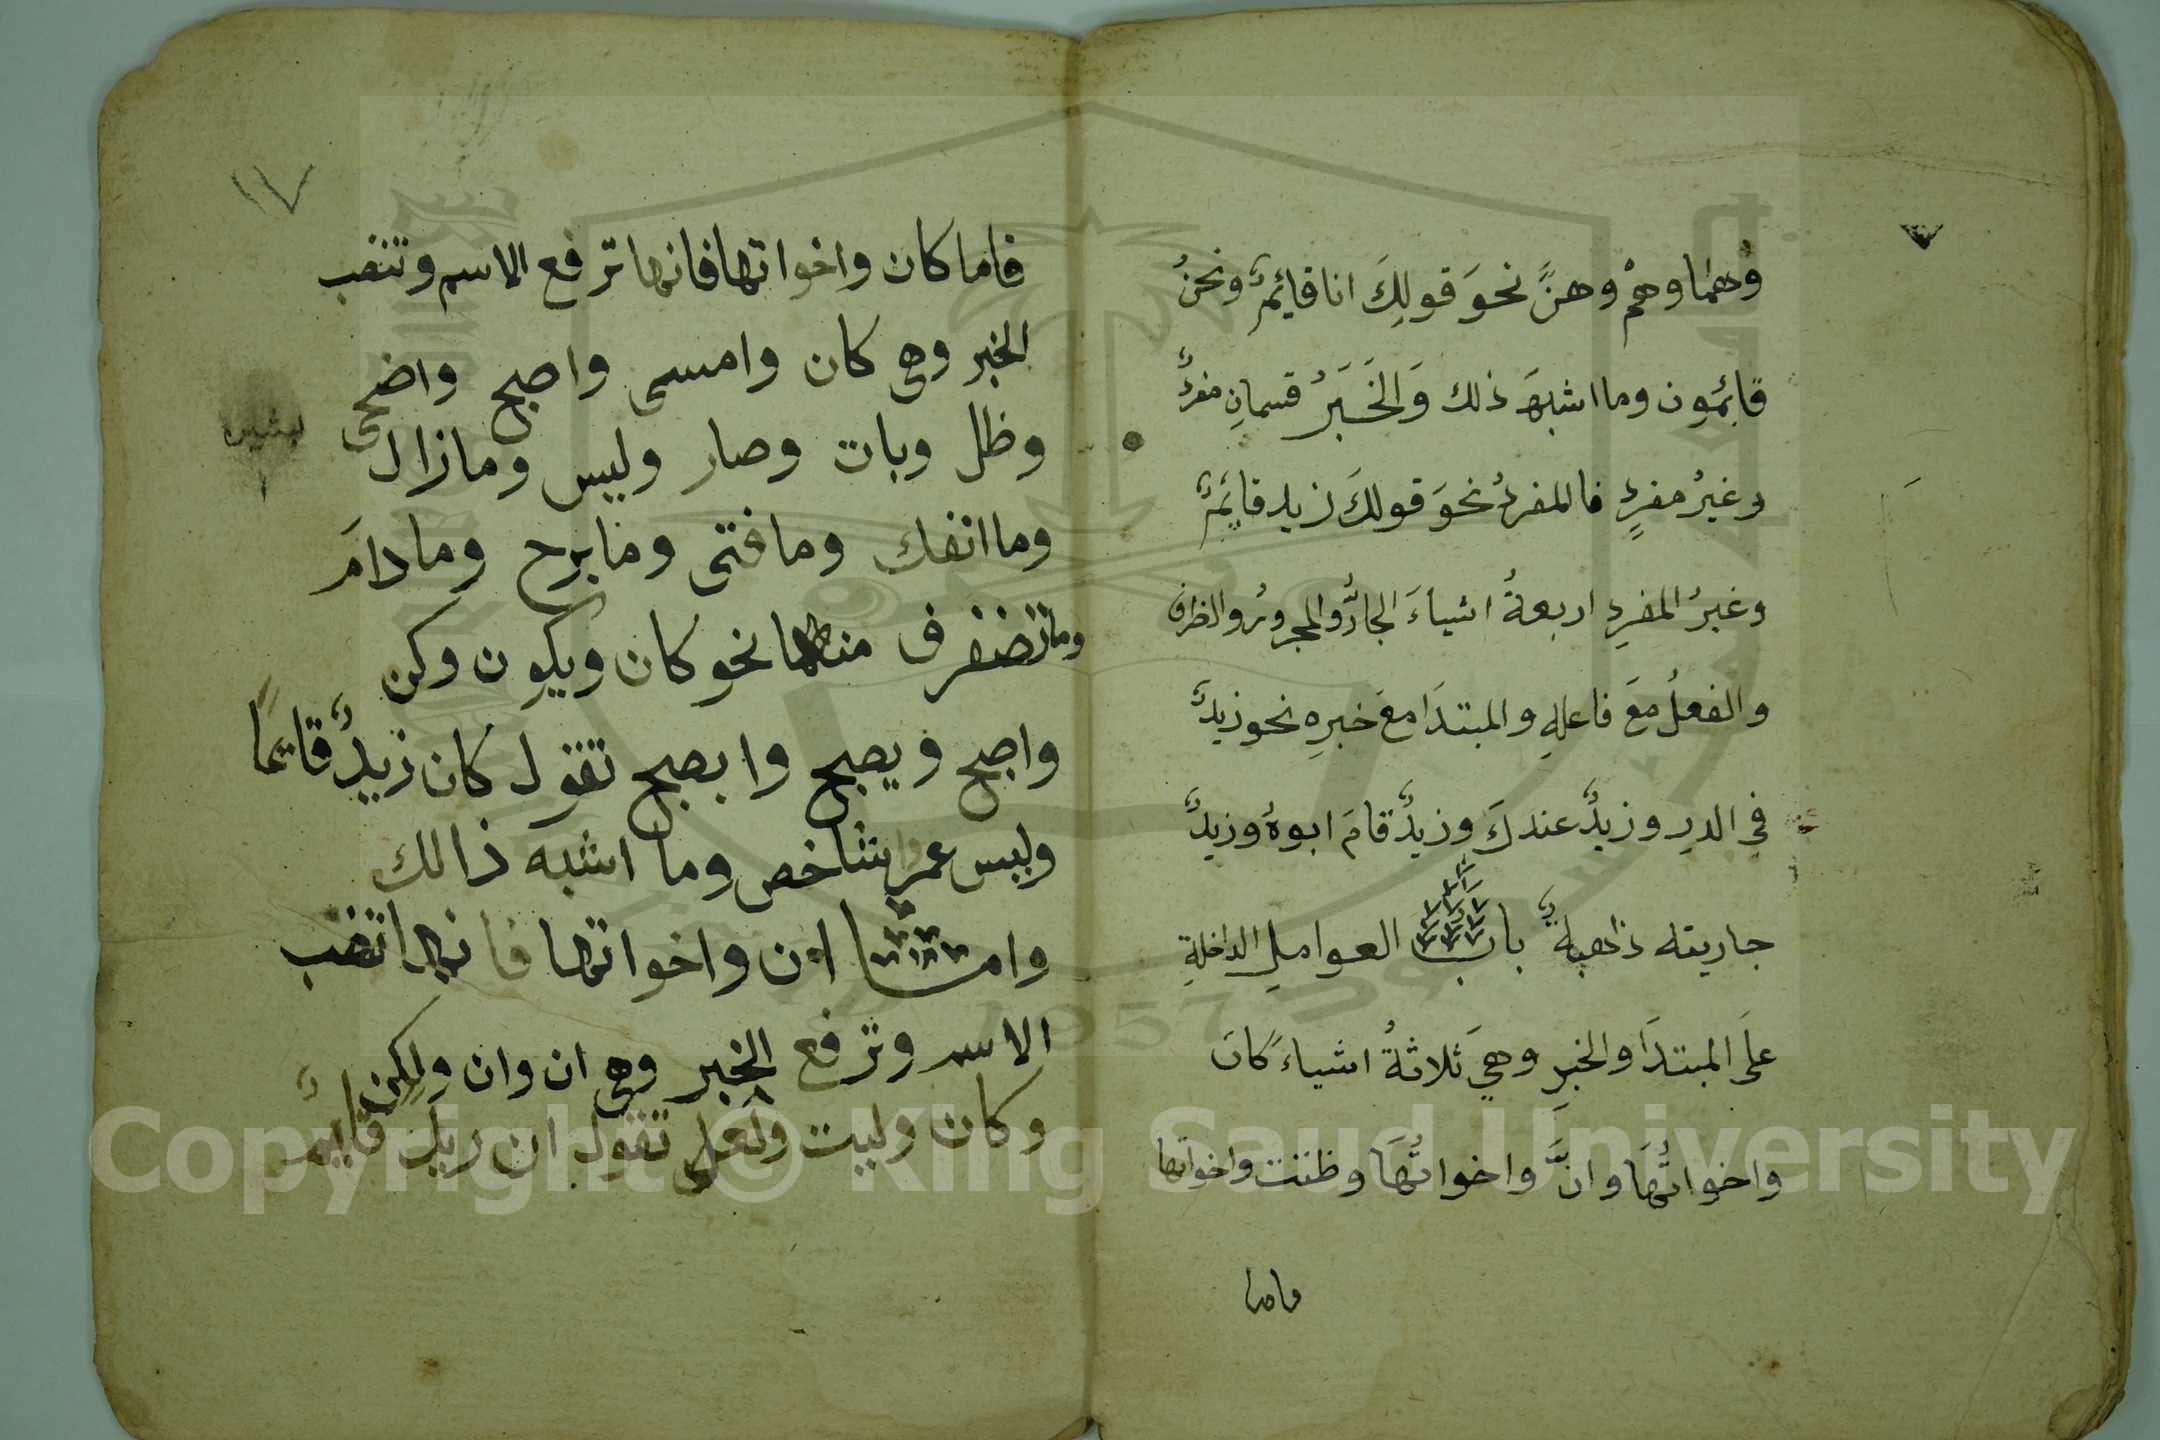 وُهما وهمْ وهنَّ نحوَ قولِكَ انا قائِمٌ ونحنُ
قائِمُون وما اشبهَ ذلك وَالخَبَرُ قسمانِ مفردٌ
وغيرُ مفردٍ فالمفردُ نحوَ قولكَ زيد قائِمٌ
وغيرُ المفردِ اربعةُ اشياءَ الجارُّ والمجرورُ والظرف
والفعلُ معَ فاعلِهِ والمبتدَا معَ خبرِهِ نحو زيدٌ
فِي الدرِ وزيدٌ عندكَ وزيدٌ قامَ ابوهُ وزيدٌ
جاريته ذاهبةٌ باب العوامِلِ الداخلةِ
علَى المبتدَا والخبرِ وهيَ ثلاثةُ اشياءَ كانَ
واخواتُهَا وانَّ واخواتُهَا وظننت واخواتها
فاما
١٧
فاما كان واخواتها فانها ترفع الاسم وتنصب
الخبر وهي كان وامسى واصبح واضحى
وظل وبات وصار وليس ومازال
وما انفك وما فتى وما برح ومادامَ
وما تصرف منها نحو كان ويكون وكن
واصبح ويصبح واصبح تقول كان زيدٌ قايمًا
وليس عمر شاخص وما اشبه ذالك
واما ان واخواتها فانها تنصب
الاسم وترفع الخبر وهي ان وان ولكن
وكان وليت ولعل تقول ان زيد قايمٌ
Copyright © King Saud University
1957